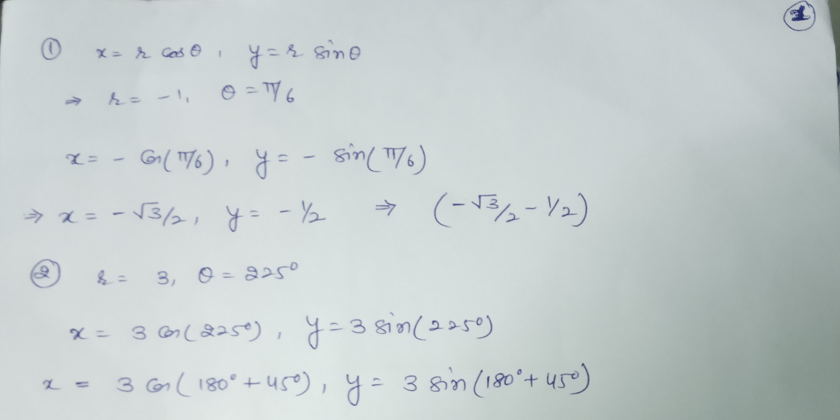 1
① x = r cosθ , y = r sinθ
⇒ r = -1, θ = π/6
x = - cos(π/6), y = - sin(π/6)
⇒ x = -√3/2, y = -1/2 ⇒ (-√3/2 -1/2)
② r = 3, θ = 225°
x = 3 cos(225°), y = 3 sin(225°)
x = 3 cos(180°+45°), y = 3 sin(180°+45°)